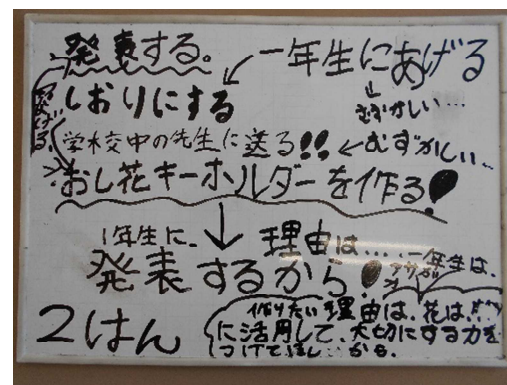 発表する。
一年生にあげる
しおりにする
むずかしい…
学校中の先生に送る!!
むずかしい…
おし花キーホルダーを作る!
1年生に、
発表するから!
理由は....
一年生は、
アサガオ
2はん
作りたい理由は、花は、
に活用して、大切にする力を
つけてほしいから。